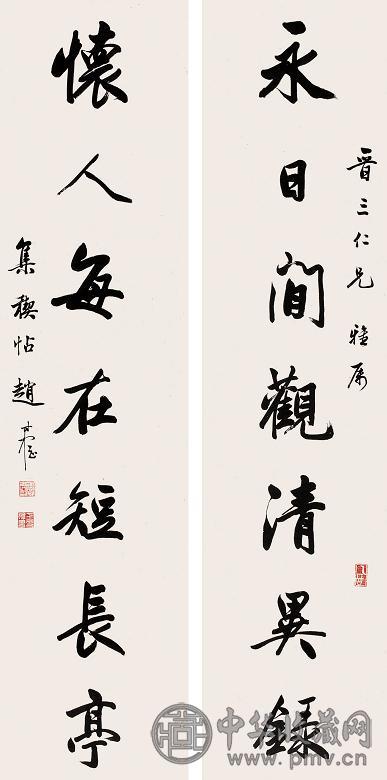 晉三仁兄雅属
永日閒觀清異錄
懷人每在短長亭
集禊帖趙
中华收藏网
www.pmv.cn